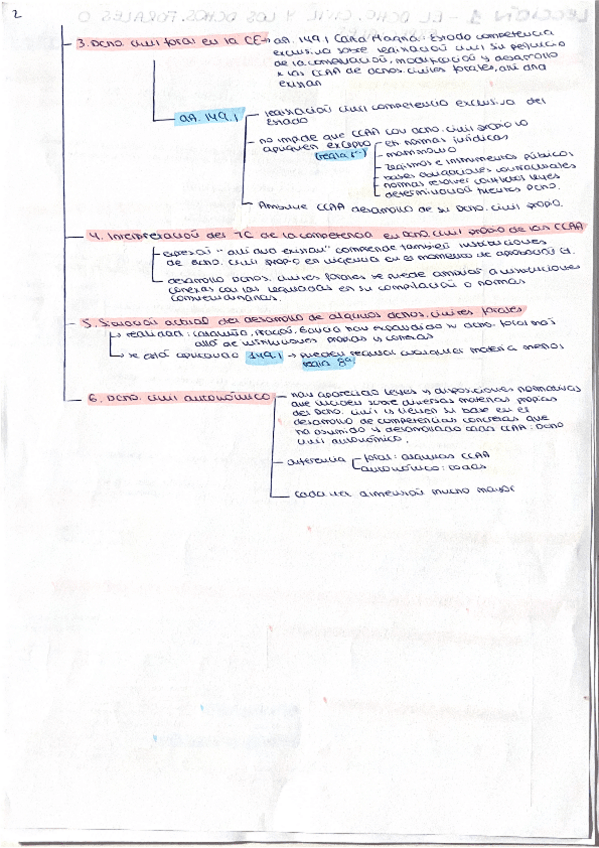 2
3. Dcho. civil foral en la CE → art. 149.1 Carta Magna: Estado competencia
exclusiva sobre legislación civil sin perjuicio
de la conservación, modificación y desarrollo
x las CCAA de dchos. civiles forales, allí dnd
existan
art. 149.1
legislación civil competencia exclusiva del
Estado
no impide que CCAA con dcho. civil propio lo
apliquen excepto
(regla 8ª)
en normas jurídicas
matrimonio
registros e instrumentos públicos
bases obligaciones contractuales
normas resolver conflictos leyes
determinación fuentes Dcho.
Atribuye CCAA desarrollo de su Dcho. civil propio.
4. Interpretación del TC de la competencia en Dcho. civil propio de las CCAA
expresión "allí dnd existan" comprende también instituciones
de Dcho. civil propio en vigencia en el momento de aprobación
desarrollo Dchos. civiles forales se puede ampliar a instituciones
conexas con las reguladas en su compilación o normas
consuetudinarias.
5. Situación actual del desarrollo de algunos dchos. civiles forales
realidad: Cataluña, Aragón, Galicia han expandido su dcho. foral más
allá de instituciones propias y conexas
se está aplicando 149.1 → pueden regular cualquier materia menos
regla 8ª
6. Dcho. civil autonómico
han aparecido leyes y disposiciones normativas
que inciden sobre diversas materias propias
del Dcho. civil y tienen su base en el
desarrollo de competencias concretas que
ha asumido y desarrollado cada CCAA: Dcho
civil autonómico.
diferencia
foral: algunas CCAA
autonómico: todas
cada vez dimensión mucho mayor